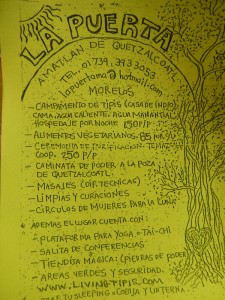 LA PUERTA
AMATLAN DE QUETZALCOATL
TEL. 01739, 393 3053
lapuertama@hotmail.com
MORELOS
- CAMPAMENTO DE TIPIS (CASA DE INDIO)
CAMA, AGUA CALIENTE, AGUA MANANTIAL
HOSPEDAJE POR NOCHE 150 P/P
- ALIMENTOS VEGETARIANOS. 85 MN
- CEREMONIA DE PURIFICACION: TEMAZ
COOP. 250 P/P
- CAMINATA DE PODER A LA POZA
DE QUETZALCOATL.
- MASAJES (DIF. TECNICAS)
- LIMPIAS Y CURACIONES
- CIRCULOS DE MUJERES PARA LA LUNA
- ADEMAS EL LUGAR CUENTA CON:
- PLATAFORMA PARA YOGA o TAI-CHI
- SALITA DE CONFERENCIAS
- TIENDITA MAGICA: (PIEDRAS DE PODER
- AREAS VERDES Y SEGURIDAD.
WWW.LIVINGTIPIS.COM
TU SLEEPING o COBIJA Y LINTERNA